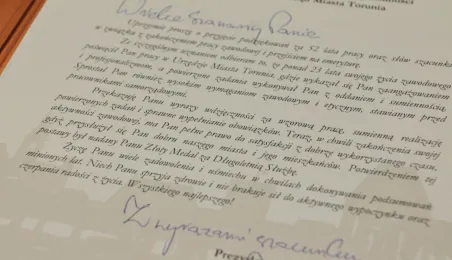 a Miasta Torunia
Wielce Szanowny Panie
Uprzejmie proszę o przyjęcie podziękowań za 52 lata pracy oraz słów szacunku
w związku z zakończeniem pracy zawodowej i przejściem na emeryturę.
Ze szczególnym uznaniem odnoszę się, że ponad 23 lata swojego życia zawodowego
poświęcił Pan pracy w Urzędzie Miasta Torunia, gdzie wykazał się Pan zaangażowaniem
i profesjonalizmem, a powierzone zadania wykonywał Pan z oddaniem i sumiennością.
Sprostał Pan również wysokim wymaganiom zawodowym i etycznym, stawianym przed
pracownikami samorządowymi.
Przekazuję Panu wyrazy wdzięczności za wzorową pracę, sumienną realizację
powierzonych zadań i sprawne wypełnianie obowiązków. Teraz, w chwili zakończenia swojej
aktywności zawodowej, ma Pan pełne prawo do satysfakcji z dobrze wykorzystanego czasu,
gdyż przysłużył się Pan dobru naszego miasta i jego mieszkańców. Potwierdzeniem tej
postawy był nadany Panu Złoty Medal za Długoletnią Służbę.
Życzę Panu wiele zadowolenia i uśmiechu w chwilach dokonywania podsumowań
minionych lat. Niech Panu sprzyja zdrowie i nie brakuje sił do aktywnego wypoczynku oraz
czerpania radości z życia. Wszystkiego najlepszego!
Z wyrazami szacunku
Prezyd